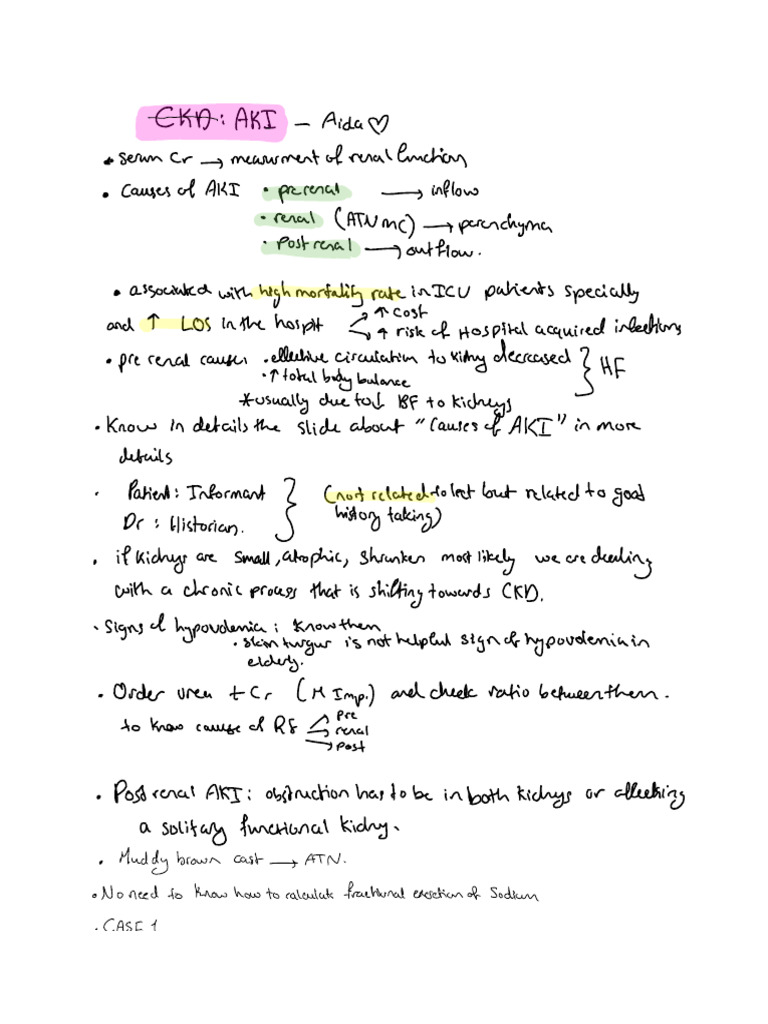 CKD: AKI - Aida♡
• serum Cr → measurment of renal function
• Causes of AKI • prerenal → inflow
• renal (ATN mc) → parenchyma
• Post renal → outflow.
• associated with high mortality rate in ICU patients specially
and ↑ LOS in the hospit ↑ cost
↑ risk of Hospital acquired infections
• pre renal causes • effective circulation to kidny decreased } HF
• ↑ total body balance
* usually due to ↓ BF to kidneys
• Know in details the slide about "Causes of AKI" in more
details
• Patient: Informant } (not related to lect but related to good
Dr: Historian. history taking)
• if kidnys are small, atrophic, shrunken most likely we are dealing
with a chronic process that is shifting towards CKD.
• Signs of hypovolemia: Know them
• skin turgur is not helpful sign of hypovolemia in
elderly.
• Order urea + Cr (M Imp.) and check ratio between them.
to know cause of RF pre
renal
post
• Post renal AKI: obstruction has to be in both kidnys or affecting
a solitary functional kidny.
• Muddy brown cast → ATN.
• No need to know how to calculate fractional excretion of Sodium
• CASE 1